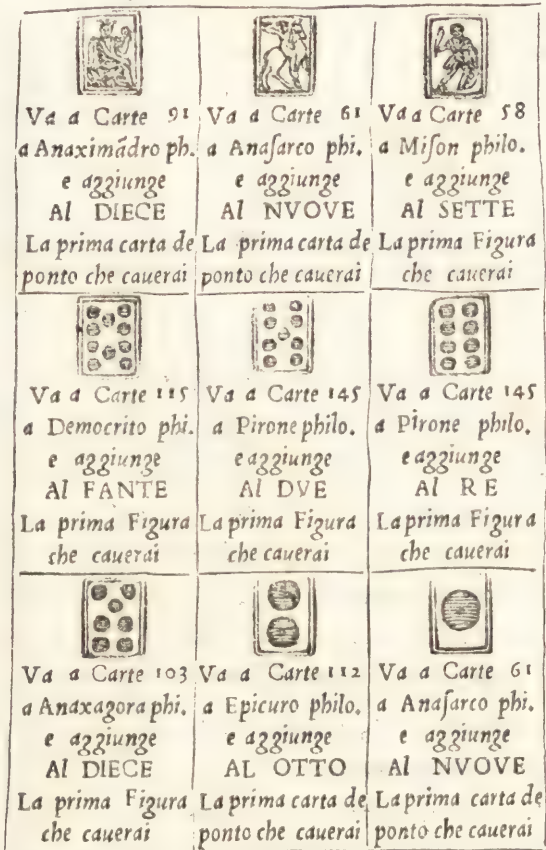 Va a Carte 91
a Anaximādro ph.
e aggiunge
Al DIECE
La prima carta de
ponto che cauerai
Va a Carte 61
a Anaſarco phi.
e aggiunge
Al NVOVE
La prima carta de
ponto che cauerai
Va a Carte 58
a Miſon philo.
e aggiunge
Al SETTE
La prima Figura
che cauerai
Va a Carte 115
a Democrito phi.
e aggiunge
Al FANTE
La prima Figura
che cauerai
Va a Carte 145
a Pirone philo.
e aggiunge
Al DVE
La prima Figura
che cauerai
Va a Carte 145
a Pirone philo.
e aggiunge
Al RE
La prima Figura
che cauerai
Va a Carte 103
a Anaxagora phi.
e aggiunge
Al DIECE
La prima Figura
che cauerai
Va a Carte 112
a Epicuro philo.
e aggiunge
AL OTTO
La prima carta de
ponto che cauerai
Va a Carte 61
a Anaſarco phi.
e aggiunge
Al NVOVE
La prima carta de
ponto che cauerai